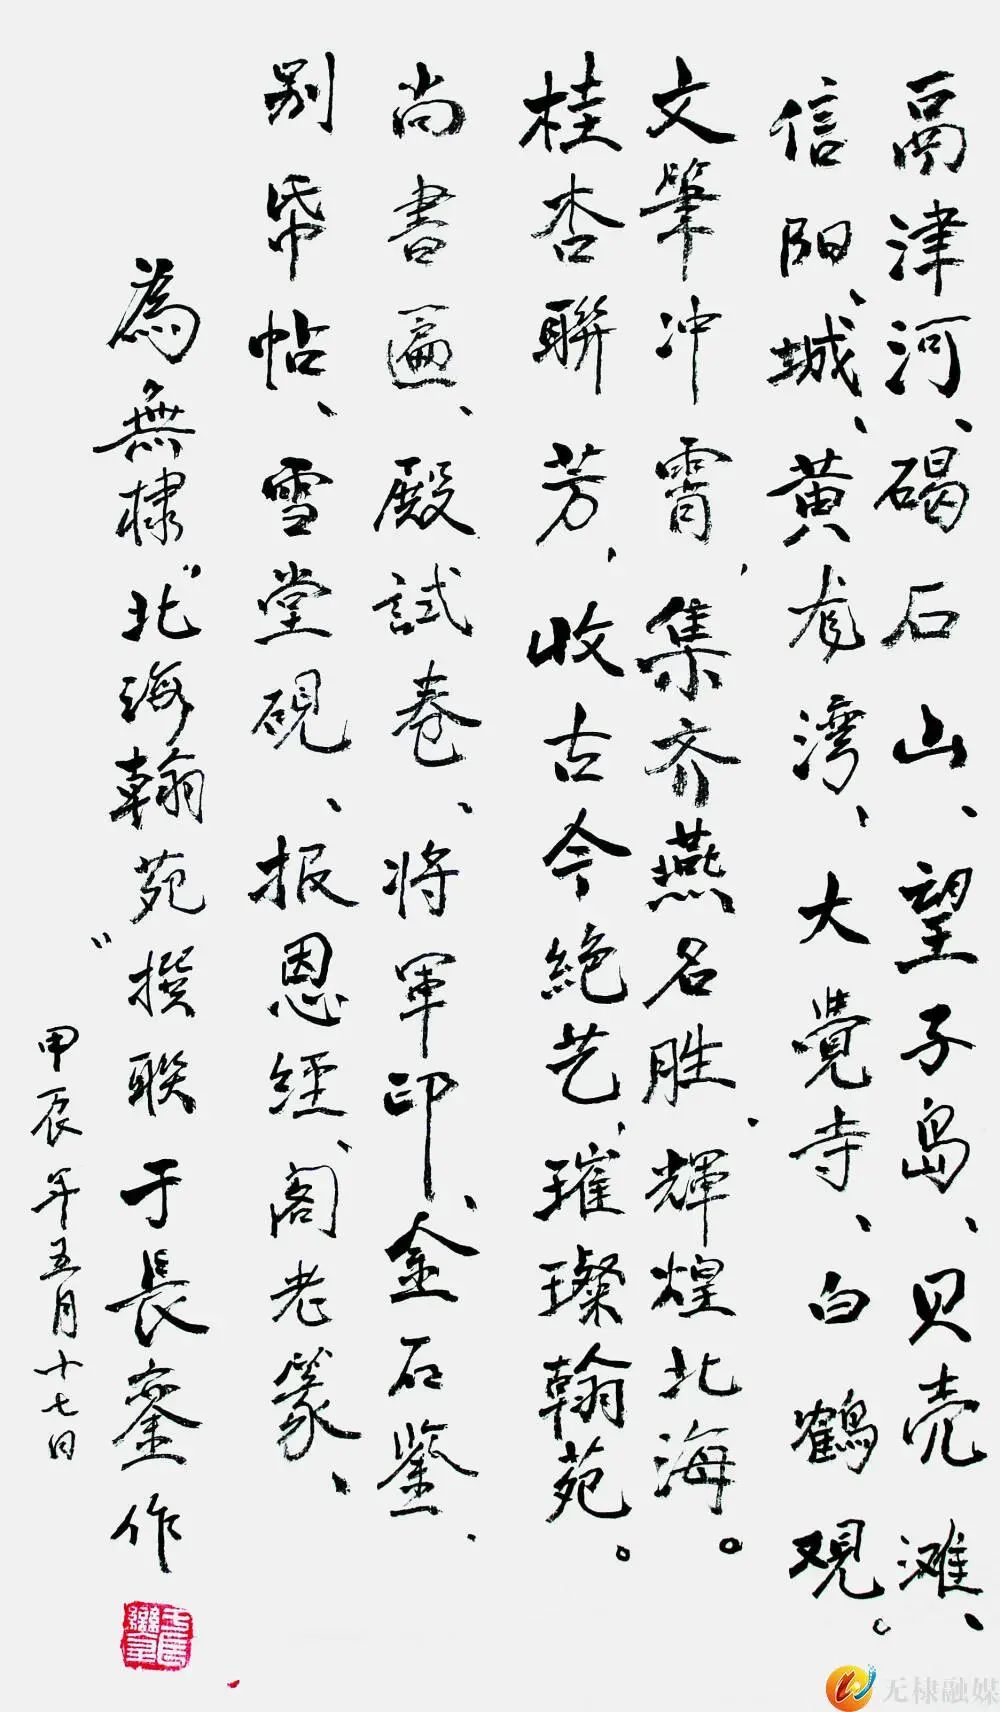 鬲津河、碣石山、望子岛、贝壳滩、
信阳城、黄龙湾、大覺寺、白鶴观。
文筆冲霄，集齐燕名胜，輝煌北海。
桂杏聯芳，收古今絕艺，璀璨翰苑。
尚書匾、殿試卷、将軍印、金石鑒、
别帋帖、雪堂硯、报恩經、阁老篆、
為無棣“北海翰苑”撰联于長銮作
甲辰年五月十七日
无棣融媒